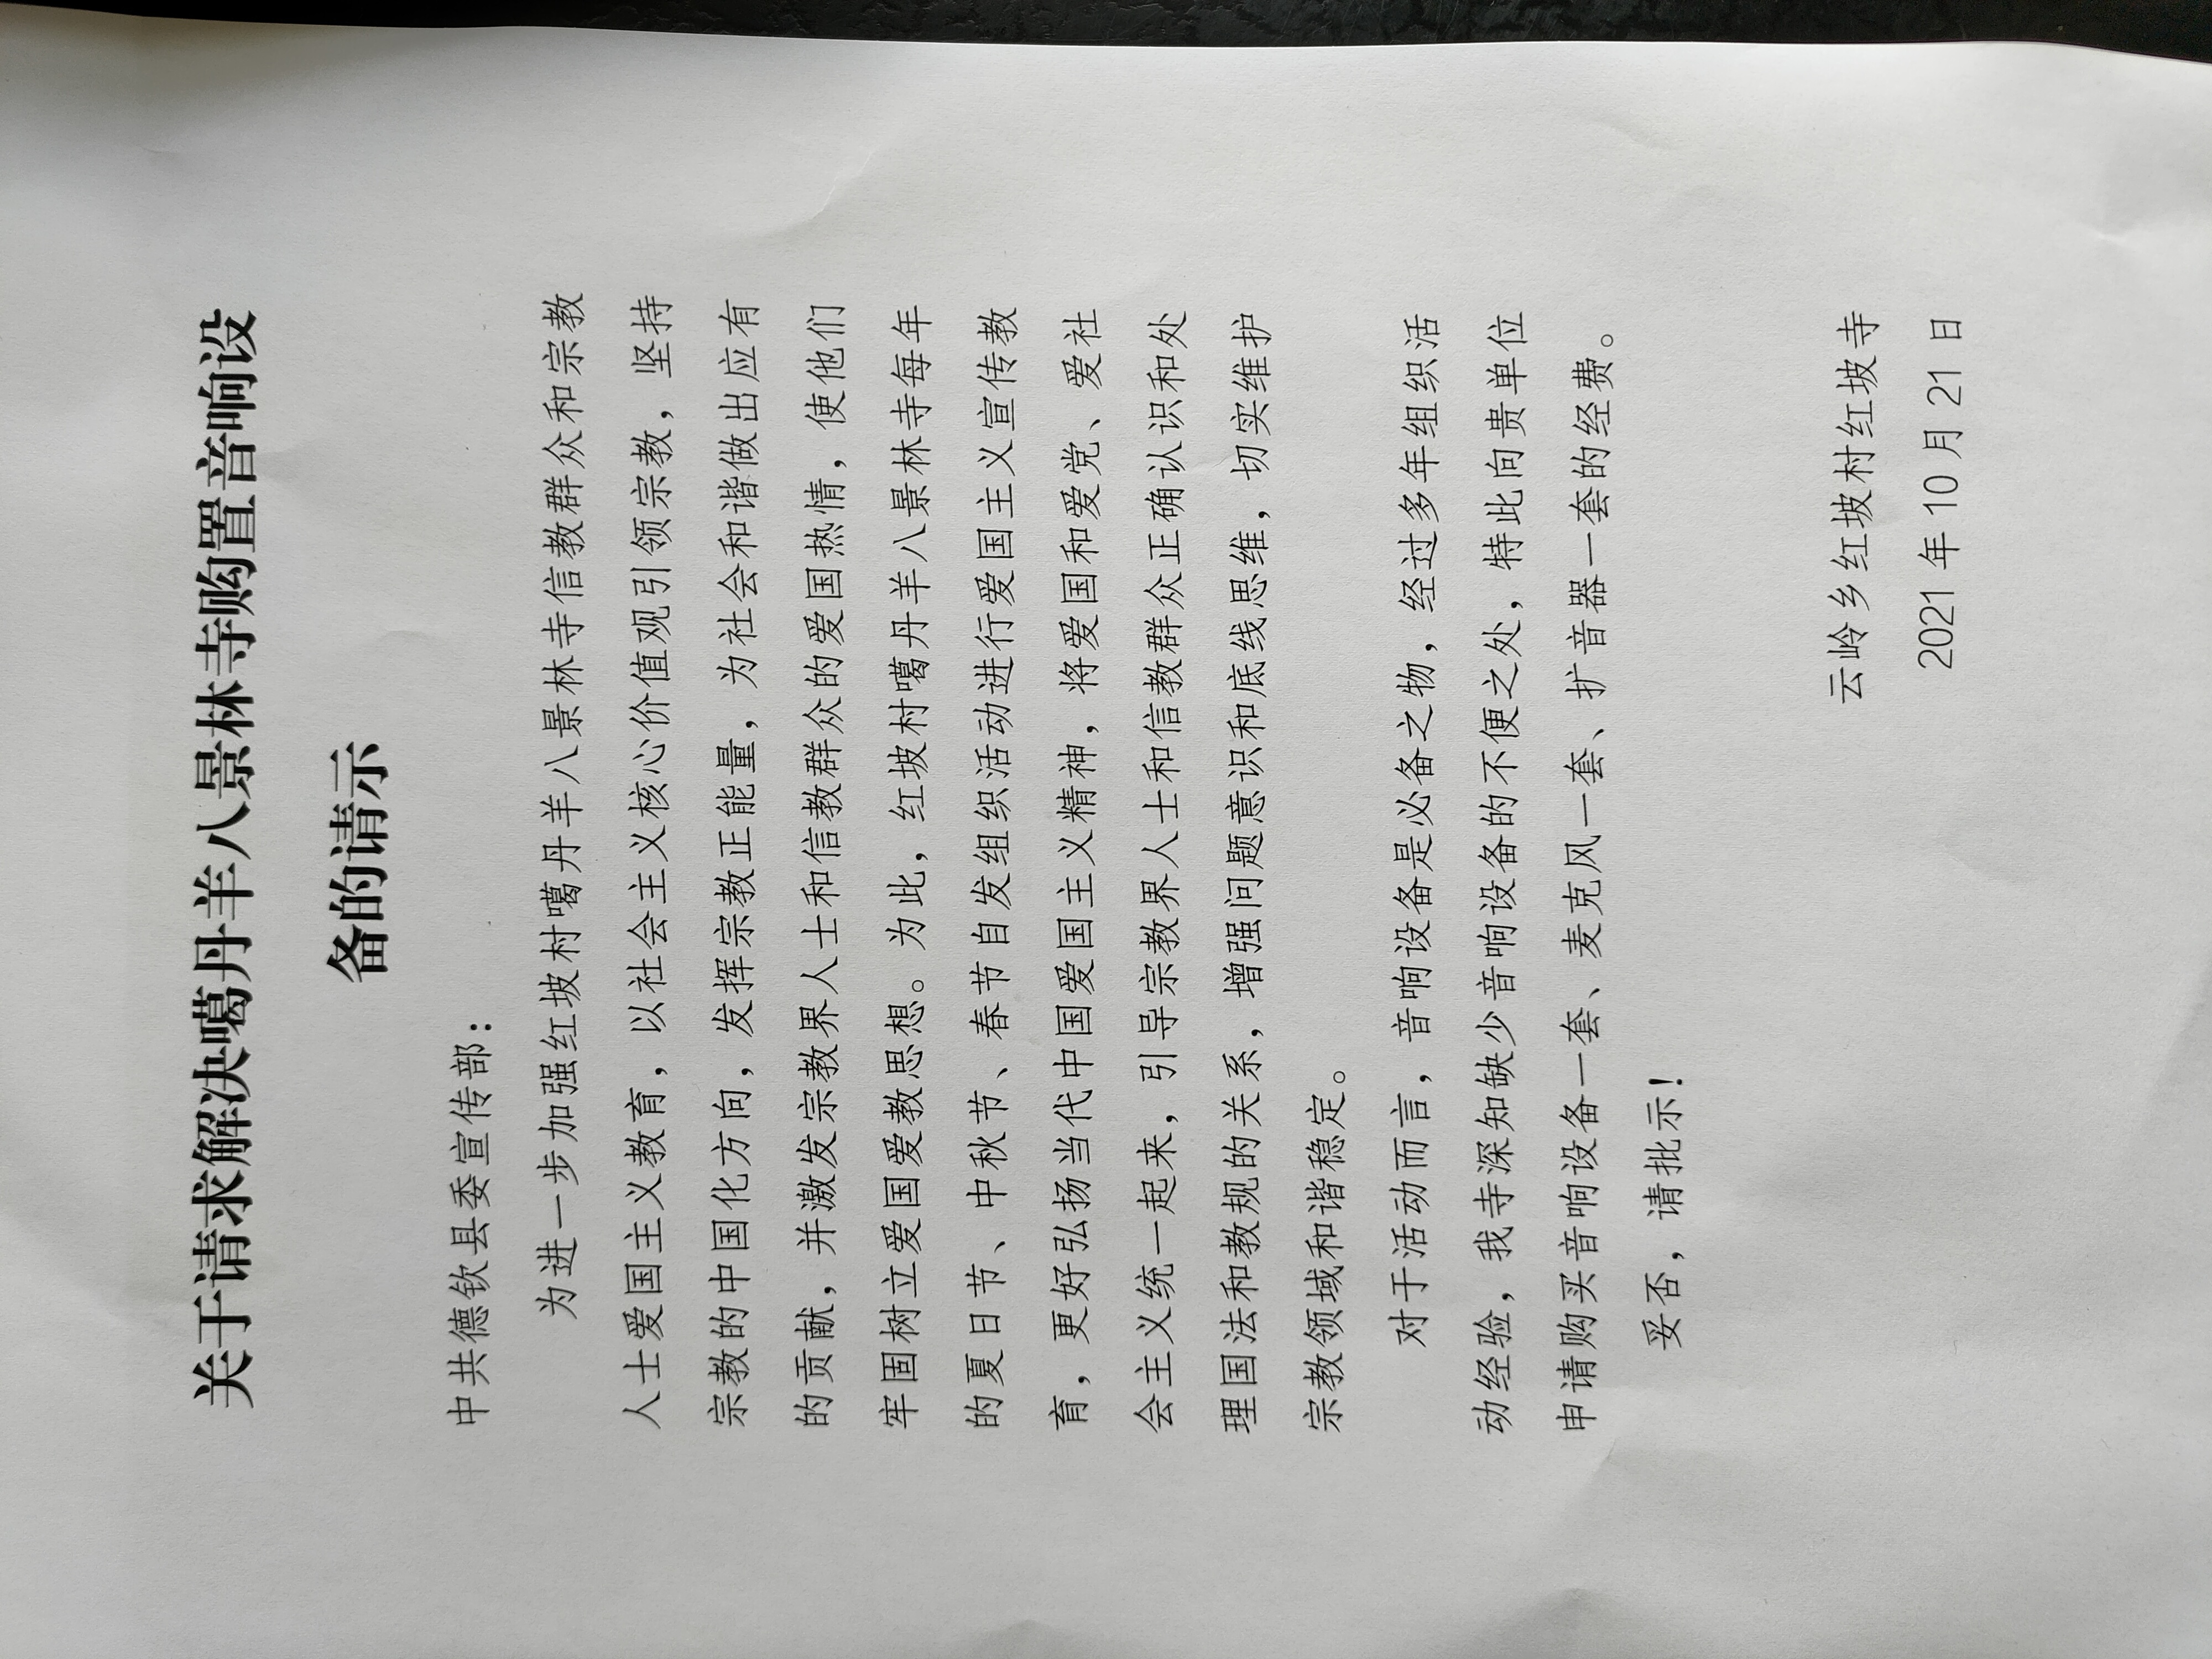 关于请求解决噶丹羊八景林寺购置音响设
备的请示
中共德钦县委宣传部：
为进一步加强红坡村噶丹羊八景林寺信教群众和宗教
人士爱国主义教育，以社会主义核心价值观引领宗教，坚持
宗教的中国化方向，发挥宗教正能量，为社会和谐做出应有
的贡献，并激发宗教界人士和信教群众的爱国热情，使他们
牢固树立爱国爱教思想。为此，红坡村噶丹羊八景林寺每年
的夏日节、中秋节、春节自发组织活动进行爱国主义宣传教
育，更好弘扬当代中国爱国主义精神，将爱国和爱党、爱社
会主义统一起来，引导宗教界人士和信教群众正确认识和处
理国法和教规的关系，增强问题意识和底线思维，切实维护
宗教领域和谐稳定。
对于活动而言，音响设备是必备之物，经过多年组织活
动经验，我寺深知缺少音响设备的不便之处，特此向贵单位
申请购买音响设备一套、麦克风一套、扩音器一套的经费。
妥否，请批示！
云岭乡红坡村红坡寺
2021年10月21日